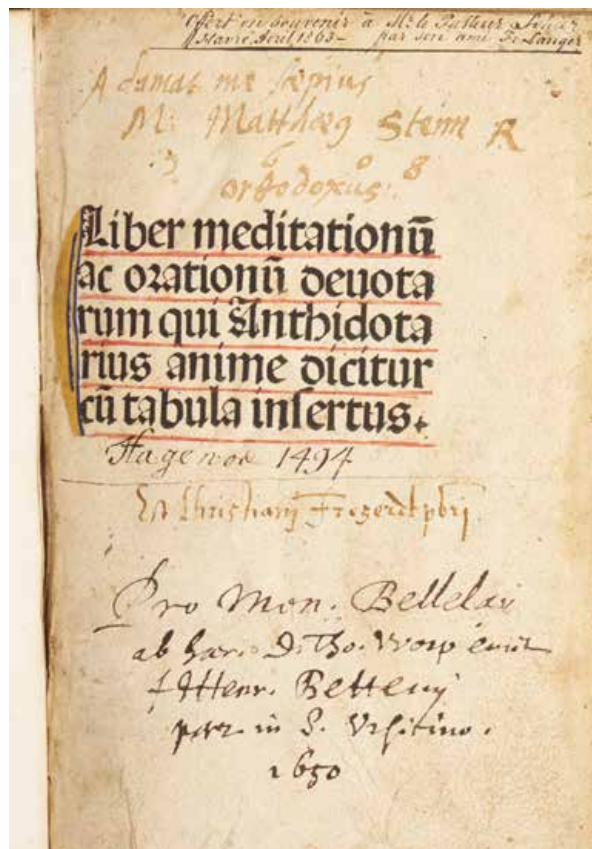 Offert en souvenir à Mr. le Pasteur
Havre Avril 1863 — par son ami Fr. Langer
Adamas me sæpius
M: Matthæus Steinn R
1 6 0 8
orthodoxus:
Liber meditationū
ac orationū deuota
rum qui Anthidota
rius anime dicitur
cū tabula insertus.
Hagenoæ 1494
Christianj pbrj
Pro Mon. Bellelai
ab hær. D. Tho. Worp emit
f Henr.
in S. Vrsitino.
1650